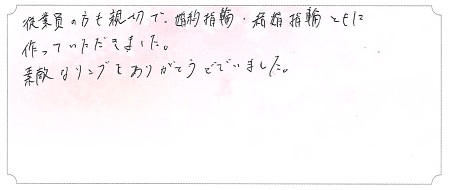 従業員の方も親切で、婚約指輪・結婚指輪ともに
作っていただきました。
素敵なリングをありがとうございました。